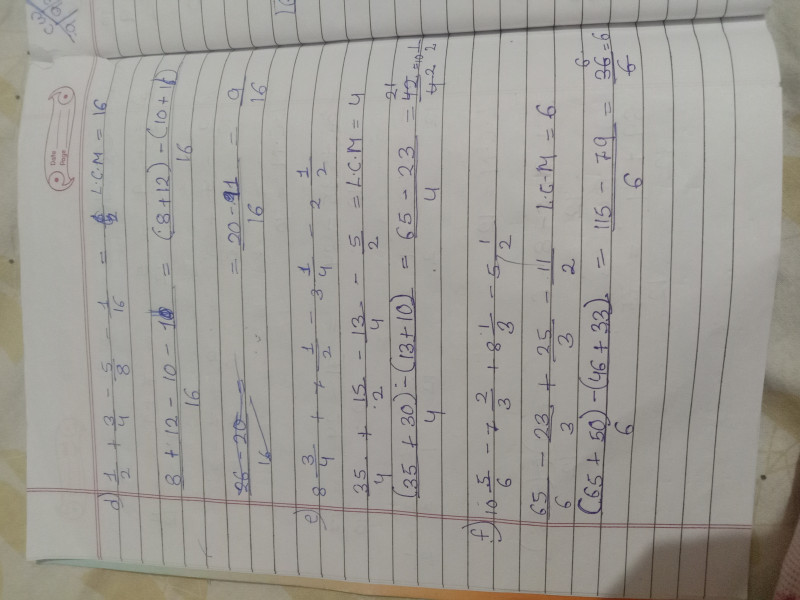 Date
Page
d) 1/2 + 3/4 - 5/8 - 1/16 = L.C.M = 16
8 + 12 - 10 - 1/16 = (8+12) - (10+1)/16
26 - 20/16 = 20 - 11/16 = 9/16
e) 8 3/4 + 7 1/2 - 3 1/4 - 2 1/2
35/4 + 15/2 - 13/4 - 5/2 = L.C.M = 4
(35 + 30) - (13 + 10)/4 = 65 - 23/4 = 42/4 = 10 1/2
f) 10 5/6 - 7 2/3 + 8 1/3 - 5 1/2
65/6 - 23/3 + 25/3 - 11/2 L.C.M = 6
(65 + 50) - (46 + 33)/6 = 115 - 79/6 = 36/6 = 6